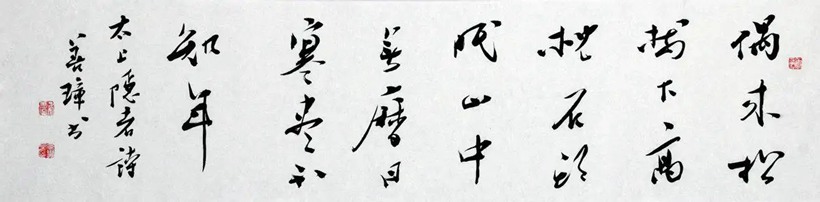 偶來松
樹下高
枕石頭
眠山中
無曆日
寒盡不
知年
太上隱者詩
善璋書